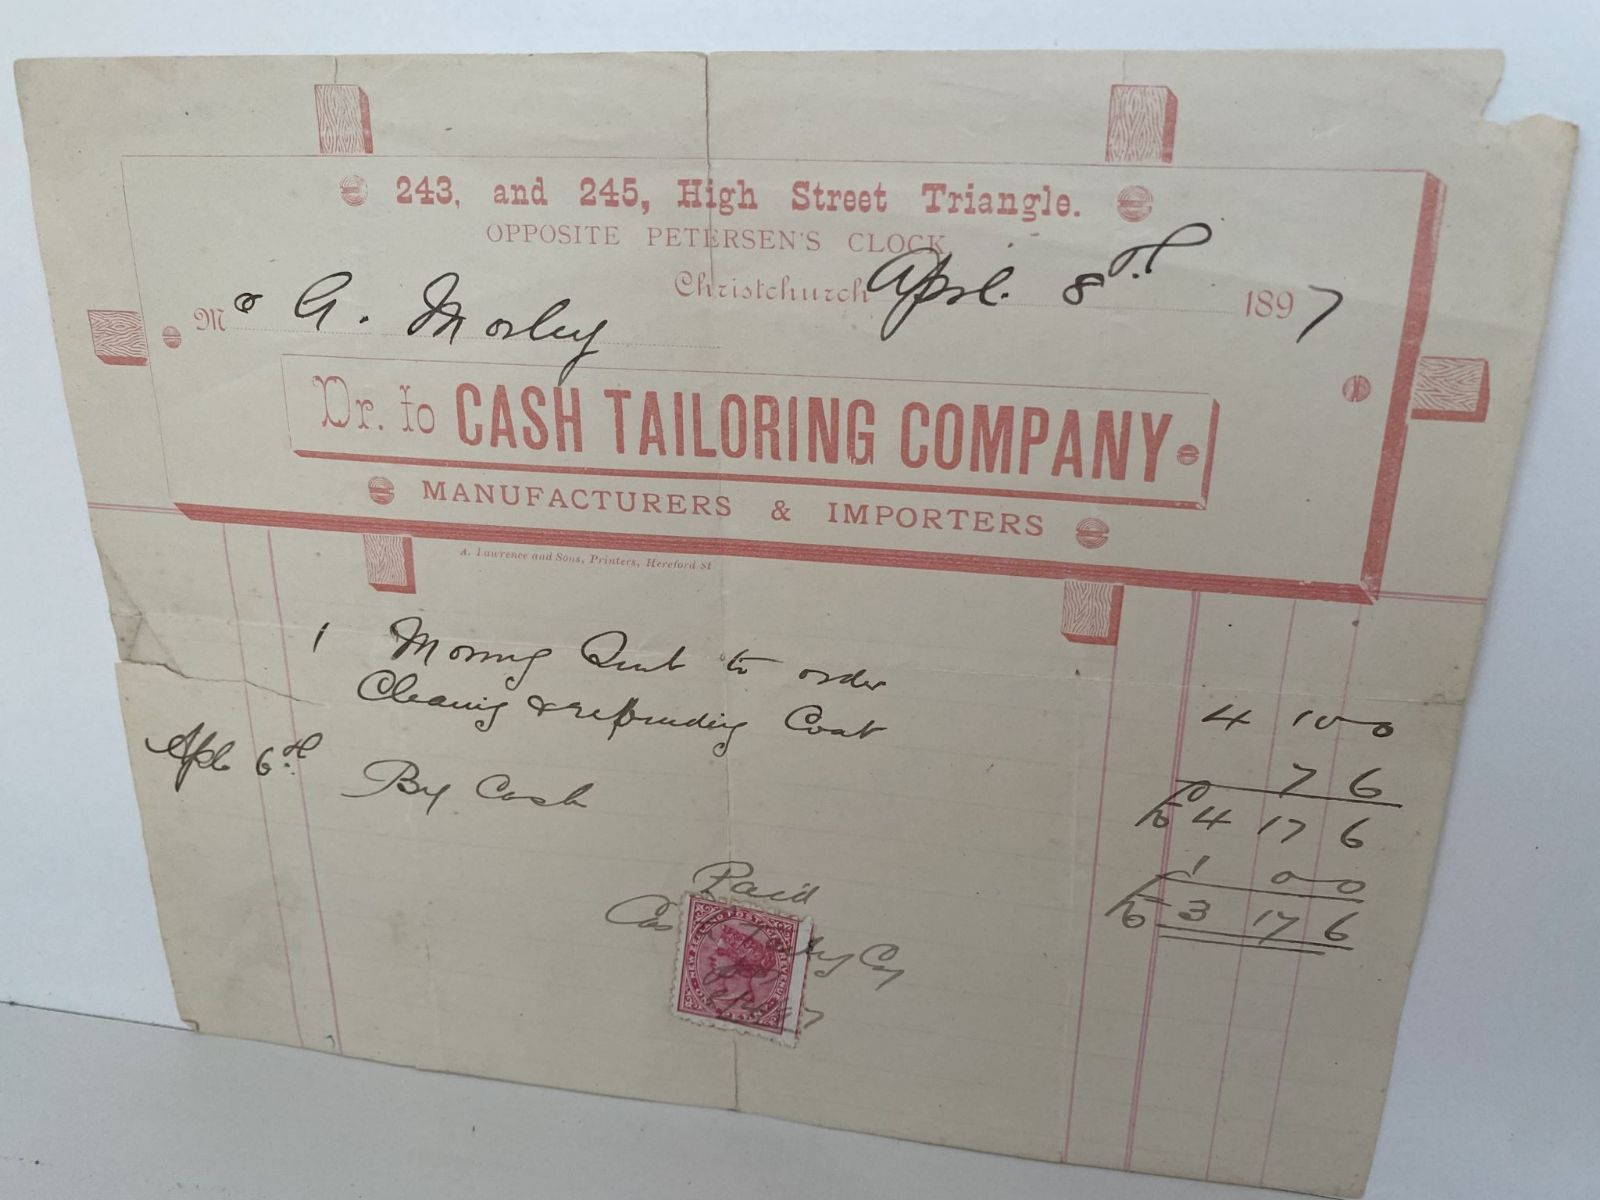 243, and 245, High Street Triangle.
OPPOSITE PETERSEN'S CLOCK
Christchurch April 8th 1897
Mr A. Morley
Dr. to CASH TAILORING COMPANY
MANUFACTURERS & IMPORTERS
A. Lawrence and Sons, Printers, Hereford St
1 Morning Suit to order 4 10 0
Cleaning & rebinding Coat 7 6
£4 17 6
Apl 6th By Cash 1 0 0
£3 17 6
Paid
Coy
NEW ZEALAND POSTAGE & REVENUE